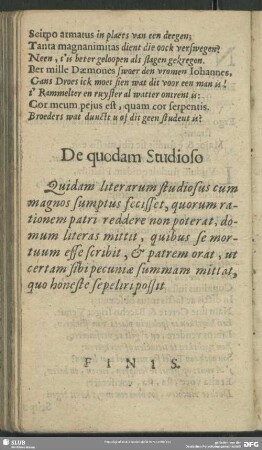 Scirpo armatus in plaets van een dergen;
Tanta magnanimitas dient die oock verswegen?
Neen, t'is beter geloopen als slagen gekregen.
Bet mille Dæmones swoer den vromen Iohannes,
Gans Droes ick moet sien wat dit voor een man is!
t' Rammelter en ruyster al watter ontrent is:
Cor meum pejus est, quam cor serpentis.
Broeders wat dunckt u of dit geen student is?
De quodam Studioso
Quidam literarum studiosus cum
magnos sumptus fecisset, quorum ra-
tionem patri reddere non poterat, do-
mum literas mittit, quibus se mor-
tuum esse scribit, & patrem orat, ut
certam sibi pecuniæ summam mittat,
quo honeste sepeliri possit
FINIS.
SLUB
DFG